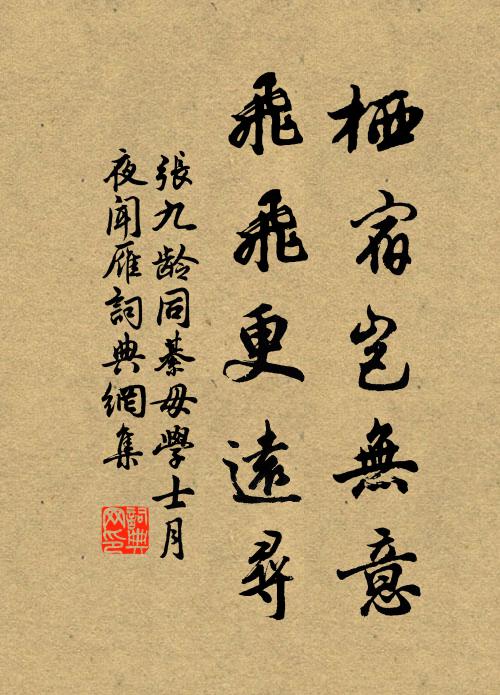 栖宿岂無意
飛飛更遠尋
張九龄同綦毋學士月
夜闻雁詞典網集
詞典
网印